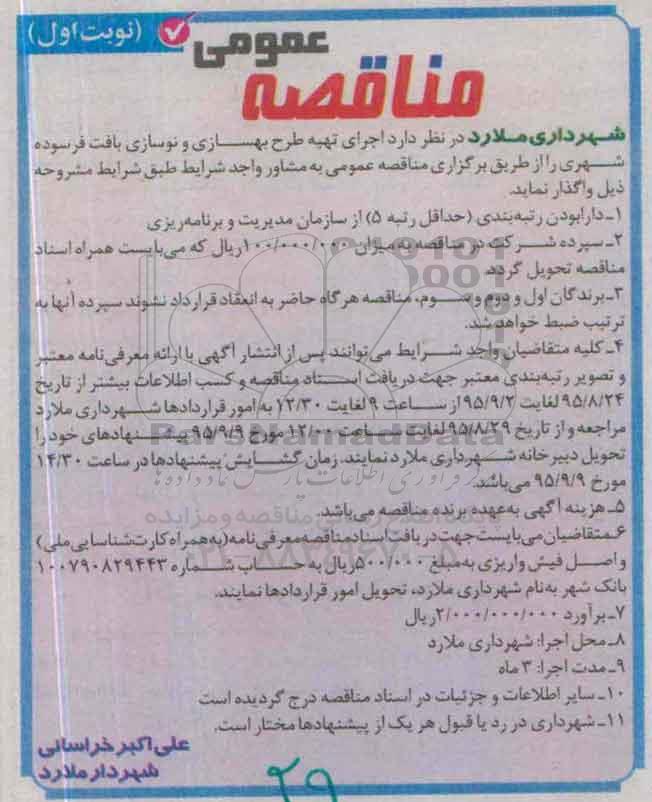 (نوبت اول)
عمومی
مناقصه
شهرداری ملارد در نظر دارد اجرای تهیه طرح بهسازی و نوسازی بافت فرسوده
شهری را از طریق برگزاری مناقصه عمومی به مشاور واجد شرایط طبق شرایط مشروحه
ذیل واگذار نماید.
۱ـ دارابودن رتبه‌بندی (حداقل رتبه ۵) از سازمان مدیریت و برنامه‌ریزی
۲ـ سپرده شرکت در مناقصه به میزان ۱۰۰/۰۰۰/۰۰۰ریال که می‌بایست همراه اسناد
مناقصه تحویل گردد.
۳ـ برندگان اول و دوم و سوم، مناقصه هرگاه حاضر به انعقاد قرارداد نشوند سپرده آنها به
ترتیب ضبط خواهد شد.
۴ـ کلیه متقاضیان واجد شرایط می‌توانند پس از انتشار آگهی با ارائه معرفی‌نامه معتبر
و تصویر رتبه‌بندی معتبر جهت دریافت اسناد مناقصه و کسب اطلاعات بیشتر از تاریخ
۹۵/۸/۲۴ لغایت ۹۵/۹/۲ از ساعت ۹ لغایت ۱۲/۳۰ به امور قراردادها شهرداری ملارد
مراجعه و از تاریخ ۹۵/۸/۲۹ لغایت ساعت ۱۲/۰۰ مورخ ۹۵/۹/۹ پیشنهادهای خود را
تحویل دبیرخانه شهرداری ملارد نمایند. زمان گشایش پیشنهادها در ساعت ۱۴/۳۰
مورخ ۹۵/۹/۹ می‌باشد.
۵ـ هزینه آگهی به‌عهده برنده مناقصه می‌باشد.
۶ـ متقاضیان می‌بایست جهت دریافت اسناد مناقصه معرفی نامه (به همراه کارت شناسایی ملی)
و اصل فیش واریزی به مبلغ ۵۰۰/۰۰۰ریال به حساب شماره ۱۰۰۷۹۰۸۲۹۴۴۳
بانک شهر به‌نام شهرداری ملارد، تحویل امور قراردادها نمایند.
۷ـ برآورد ۲/۰۰۰/۰۰۰/۰۰۰ریال
۸ـ محل اجرا: شهرداری ملارد
۹ـ مدت اجرا: ۳ ماه
۱۰ـ سایر اطلاعات و جزئیات در اسناد مناقصه درج گردیده است
۱۱ـ شهرداری در رد یا قبول هر یک از پیشنهادها مختار است.
علی اکبر خراسانی
شهردار ملارد
۲۹
ParsNamadData